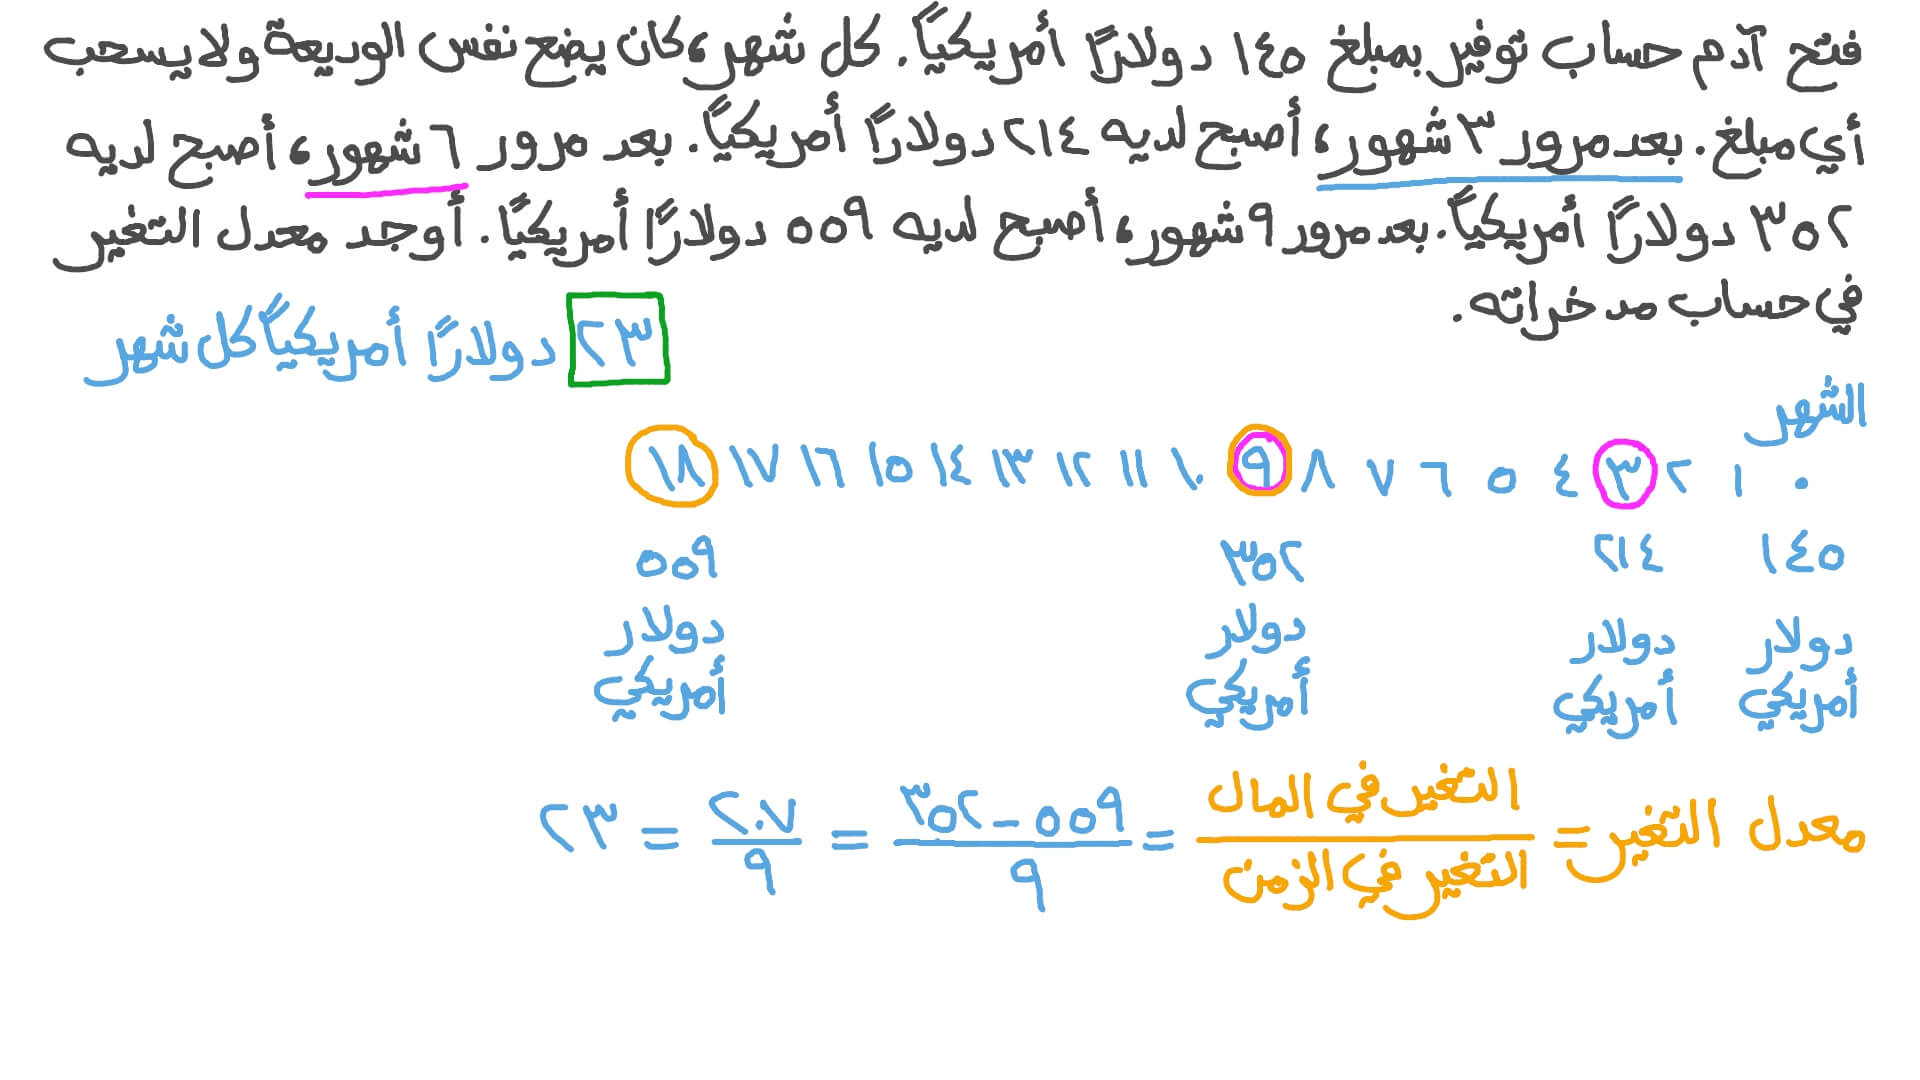 فتح آدم حساب توفير بمبلغ ١٤٥ دولارًا أمريكيًا. كل شهر، كان يضع نفس الوديعة ولا يسحب
أي مبلغ. بعد مرور ٣ شهور، أصبح لديه ٢١٤ دولارًا أمريكيًا. بعد مرور ٦ شهور، أصبح لديه
٣٥٢ دولارًا أمريكيًا. بعد مرور ٩ شهور، أصبح لديه ٥٥٩ دولارًا أمريكيًا. أوجد معدل التغير
في حساب مدخراته.
٢٣ دولارًا أمريكيًا كل شهر
الشهر
٠ ١ ٢ ٣ ٤ ٥ ٦ ٧ ٨ ٩ ١٠ ١١ ١٢ ١٣ ١٤ ١٥ ١٦ ١٧ ١٨
١٤٥ ٢١٤ ٣٥٢ ٥٥٩
دولار دولار دولار دولار
أمريكي أمريكي أمريكي أمريكي
معدل التغير = التغير في المال / التغير في الزمن = ٥٥٩ - ٣٥٢ / ٩ = ٢٠٧ / ٩ = ٢٣